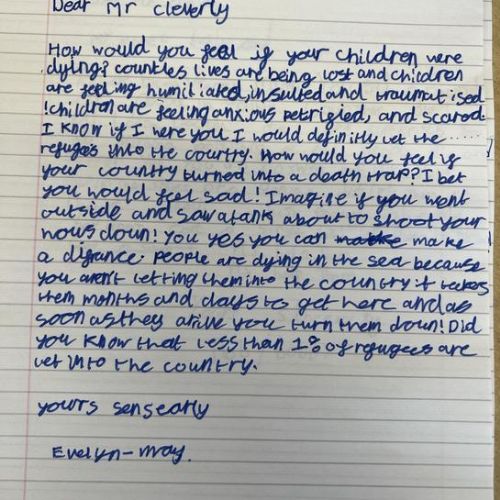 Dear Mr cleverly
How would you feel if your children were
dying? countles lives are being lost and children
are feeling humiliated, insulted and traumatised
!children are feeling anxious petrified, and scared
I know if I were you I would definitly let the ......
refugees into the courtry. How would you feel if
your country turned into a death trap? I bet
you would feel sad! Imagine if you went
outside and saw a tank about to shoot your
hous down! You yes you can make
a difrance. People are dying in the sea because
you aren't letting them into the country it takes
them months and days to get here and as
soon as they arive you turn them down! Did
you know that less than 1% of refugees are
let into the country.
yours sensearly
Evelyn-may.